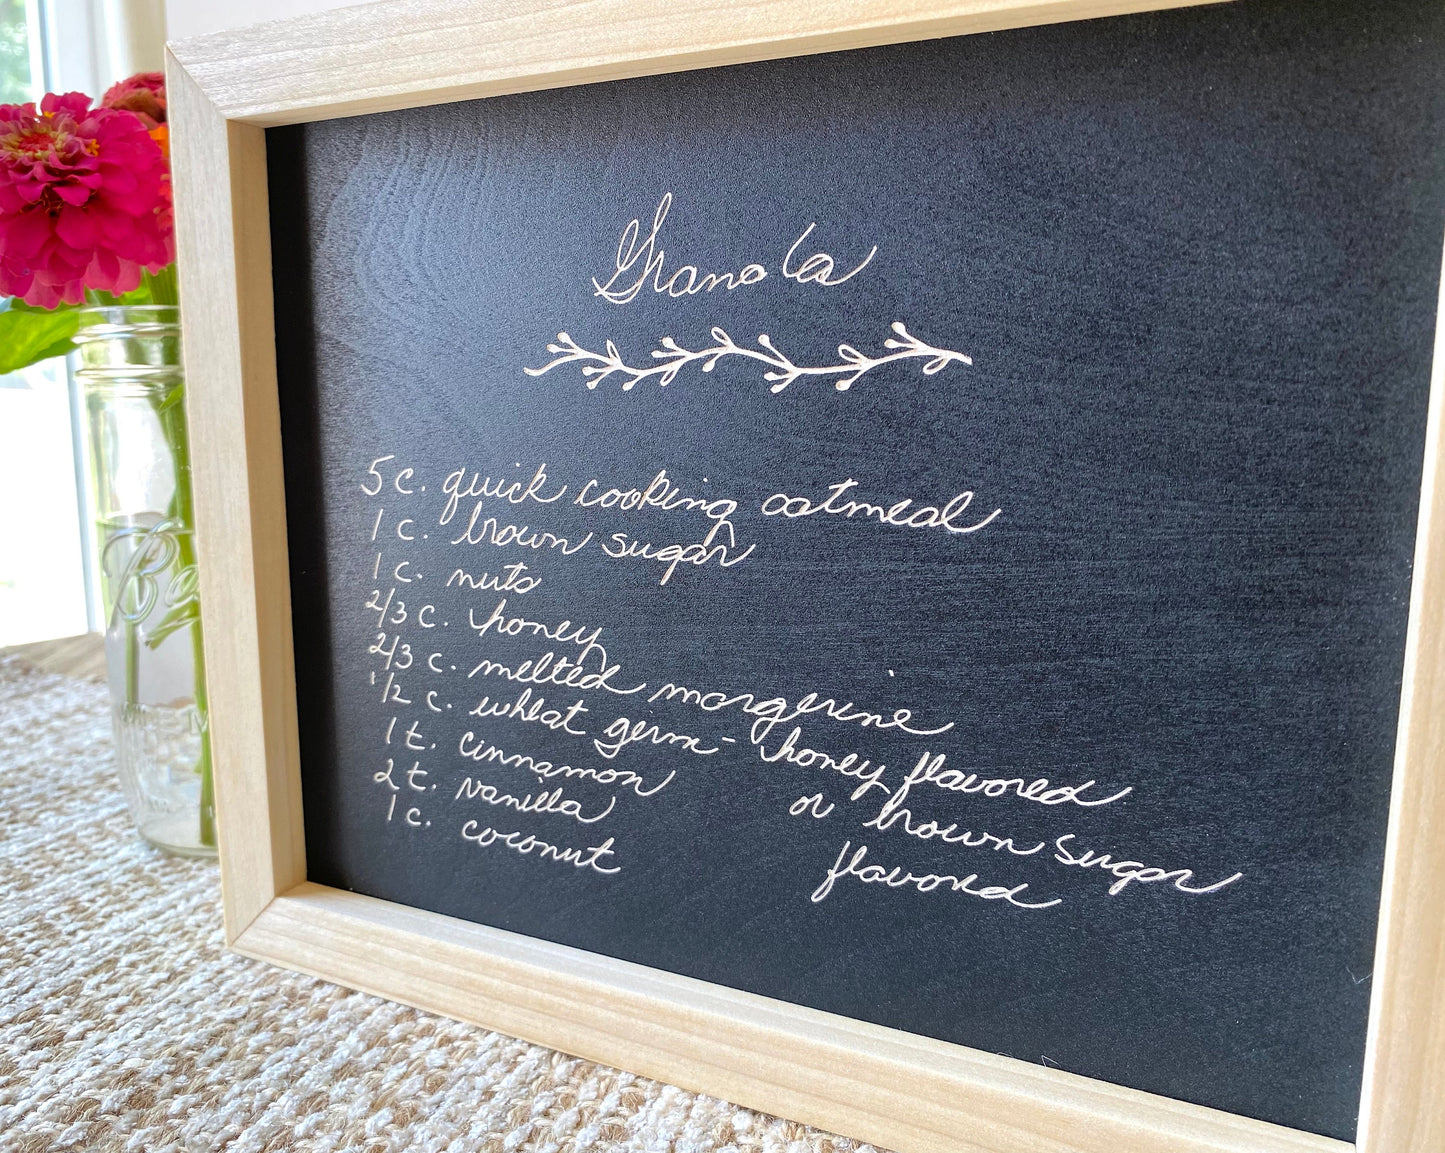 Granola
5 c. quick cooking oatmeal
1 c. brown sugar
1 c. nuts
2/3 c. honey
2/3 c. melted margerine
1/2 c. wheat germ - honey flavored
or brown sugar
flavored
1 t. cinnamon
2 t. vanilla
1 c. coconut
Ball